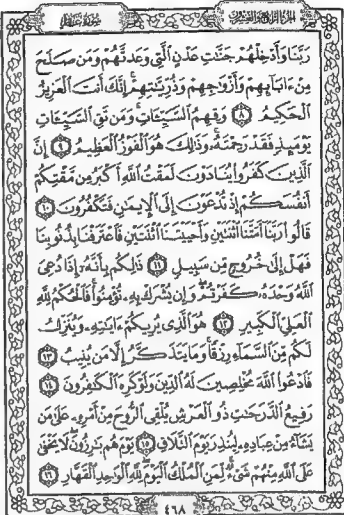 الجزء الرابع والعشرون
سورة غافر
رَبَّنَا وَأَدْخِلْهُمْ جَنَّٰتِ عَدْنٍ ٱلَّتِى وَعَدتَّهُمْ وَمَن صَلَحَ
مِنْ ءَابَآئِهِمْ وَأَزْوَٰجِهِمْ وَذُرِّيَّٰتِهِمْ إِنَّكَ أَنتَ ٱلْعَزِيزُ
ٱلْحَكِيمُ ٨ وَقِهِمُ ٱلسَّيِّـَٔاتِ وَمَن تَقِ ٱلسَّيِّـَٔاتِ
يَوْمَئِذٍ فَقَدْ رَحِمْتَهُۥ وَذَٰلِكَ هُوَ ٱلْفَوْزُ ٱلْعَظِيمُ ٩ إِنَّ
ٱلَّذِينَ كَفَرُوا۟ يُنَادَوْنَ لَمَقْتُ ٱللَّهِ أَكْبَرُ مِن مَّقْتِكُمْ
أَنفُسَكُمْ إِذْ تُدْعَوْنَ إِلَى ٱلْإِيمَٰنِ فَتَكْفُرُونَ ١٠
قَالُوا۟ رَبَّنَآ أَمَتَّنَا ٱثْنَتَيْنِ وَأَحْيَيْتَنَا ٱثْنَتَيْنِ فَٱعْتَرَفْنَا بِذُنُوبِنَا
فَهَلْ إِلَىٰ خُرُوجٍ مِّن سَبِيلٍ ١١ ذَٰلِكُم بِأَنَّهُۥٓ إِذَا دُعِىَ
ٱللَّهُ وَحْدَهُۥ كَفَرْتُمْ وَإِن يُشْرَكْ بِهِۦ تُؤْمِنُوا۟ فَٱلْحُكْمُ لِلَّهِ
ٱلْعَلِىِّ ٱلْكَبِيرِ ١٢ هُوَ ٱلَّذِى يُرِيكُمْ ءَايَٰتِهِۦ وَيُنَزِّلُ
لَكُم مِّنَ ٱلسَّمَآءِ رِزْقًا وَمَا يَتَذَكَّرُ إِلَّا مَن يُنِيبُ ١٣
فَٱدْعُوا۟ ٱللَّهَ مُخْلِصِينَ لَهُ ٱلدِّينَ وَلَوْ كَرِهَ ٱلْكَٰفِرُونَ ١٤
رَفِيعُ ٱلدَّرَجَٰتِ ذُو ٱلْعَرْشِ يُلْقِى ٱلرُّوحَ مِنْ أَمْرِهِۦ عَلَىٰ مَن
يَشَآءُ مِنْ عِبَادِهِۦ لِيُنذِرَ يَوْمَ ٱلتَّلَاقِ ١٥ يَوْمَ هُم بَٰرِزُونَ لَا يَخْفَىٰ
عَلَى ٱللَّهِ مِنْهُمْ شَىْءٌ لِّمَنِ ٱلْمُلْكُ ٱلْيَوْمَ لِلَّهِ ٱلْوَٰحِدِ ٱلْقَهَّارِ ١٦
٤٦٨